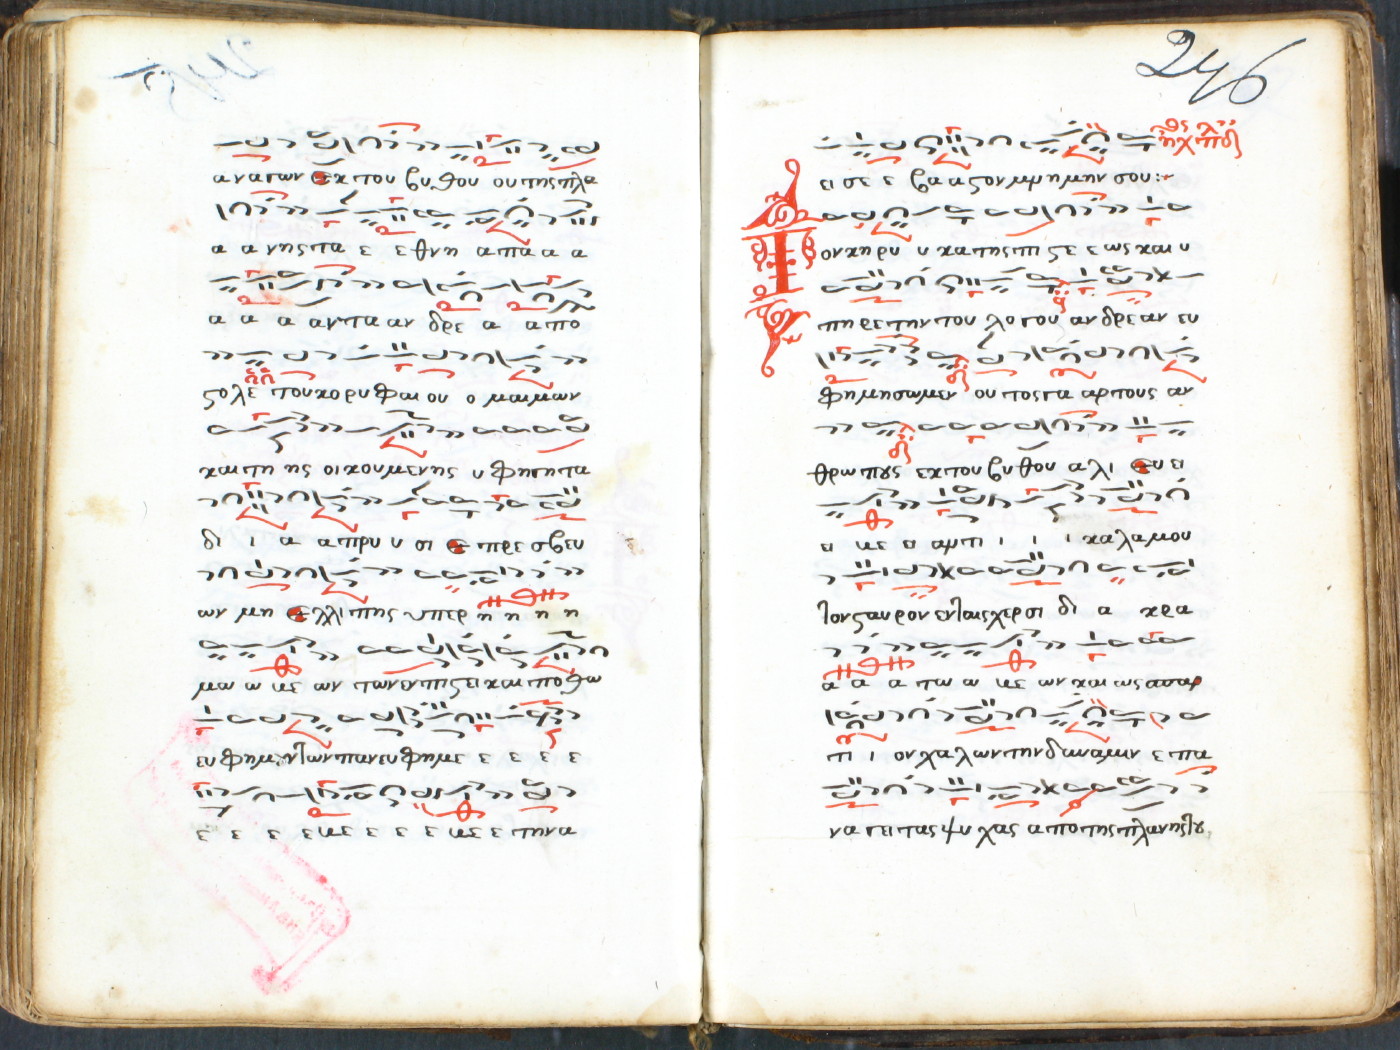 α να γων εκ του βυ θου ου της πλα
α α νης τα ε ε θνη α πα α α
α α α αν τα αν δρε α α πο
ϛο λε του κο ρυ φαι ου ο μαι μων
και τη ης οι κου με νης υ φη γη τα
δι ι α α πρυ υ σι ε πρε σβευ
ων μη ελ λι πης υπερ η η η η
μω ω με ων των εν πι ϛει και πο θω
ευ φημουν των παν ευ φη με ε ε ε ε
ε ε ε ε με ε ε ε με ε την α
246
ει σε ε βα α ϛον μρ η μην σου :~
ηχ πδ
Τ
ον κη ρυ υ κα της πι ϛε ε ως και υ
πη ρε την του λο γου αν δρε αν ευ
φη μη σω μεν ου τος γα αρ τους αν
θρω πους εκ του βυ θου α λι ευ ει
ει με ει αρ τι ι ι ι κα λα μου
τον ϛαυ ρον εν ταις χερ σι δι α κρα
α α α τω ω με ων και ως α σπαρ
τι ι ον χα λων την δυναμιν ε πα
να γει τας ψυ χας α πο της πλανης του